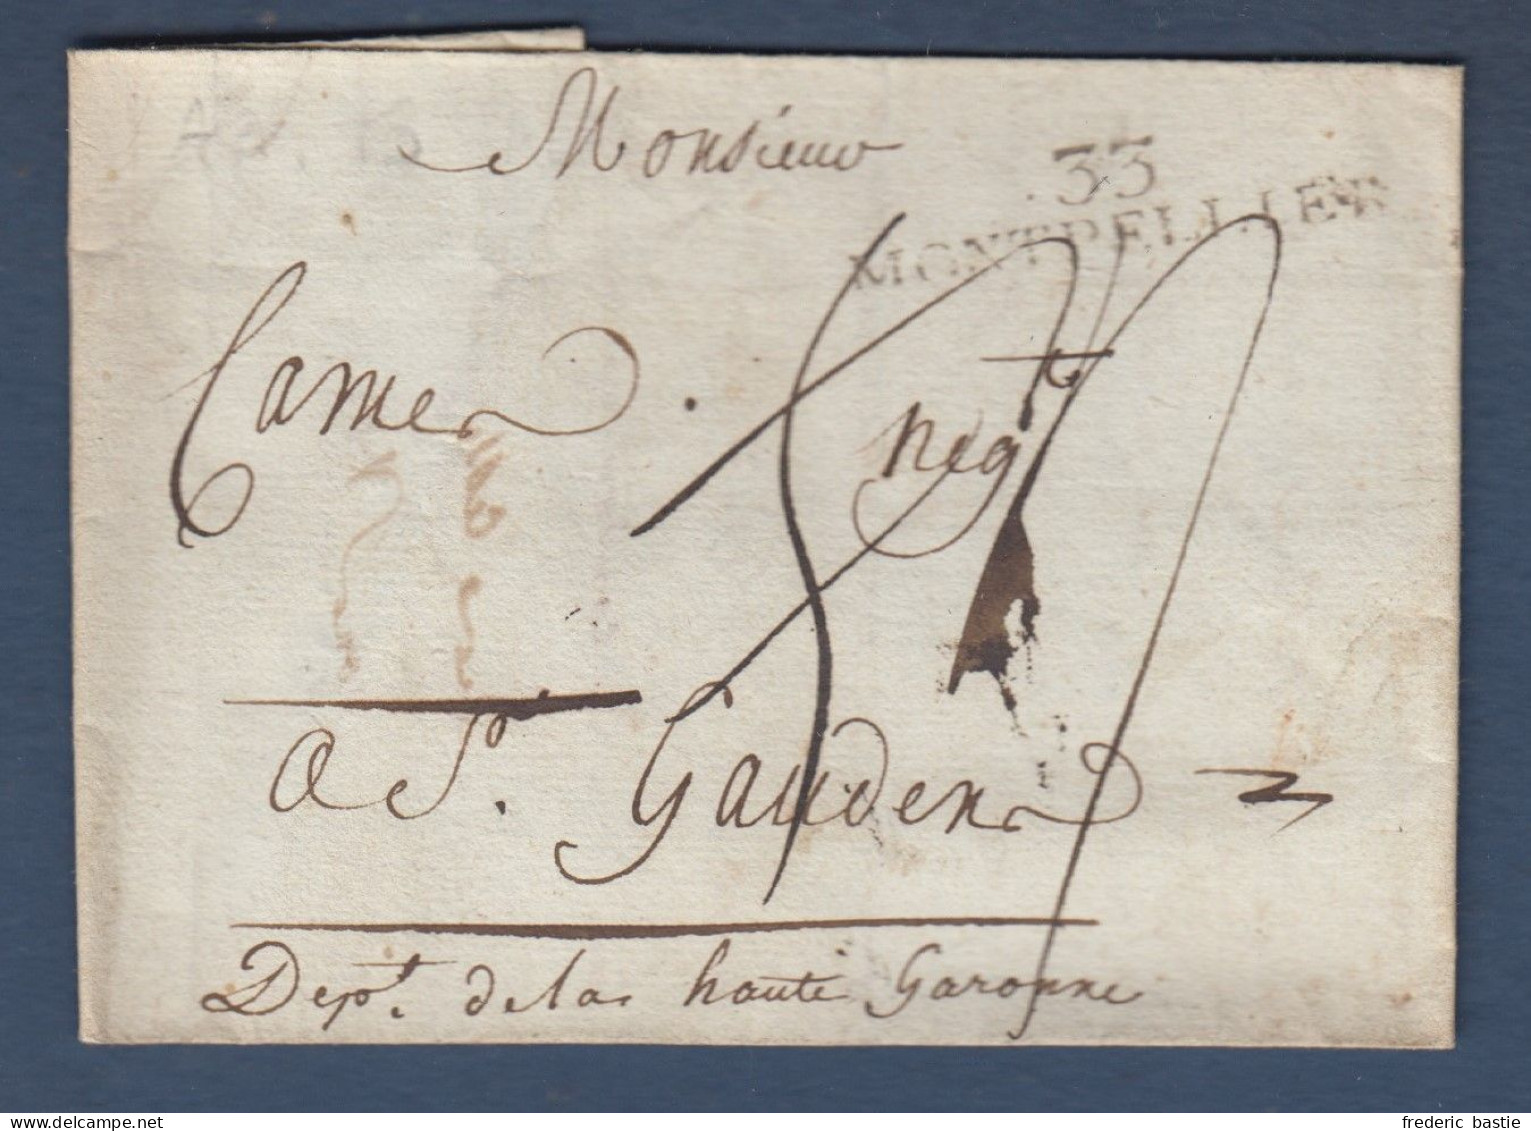 Monsieur
33
MONTPELLIER
Came . negt
a St. Gauden
Dept. de la haute Garonne
frederic bastie